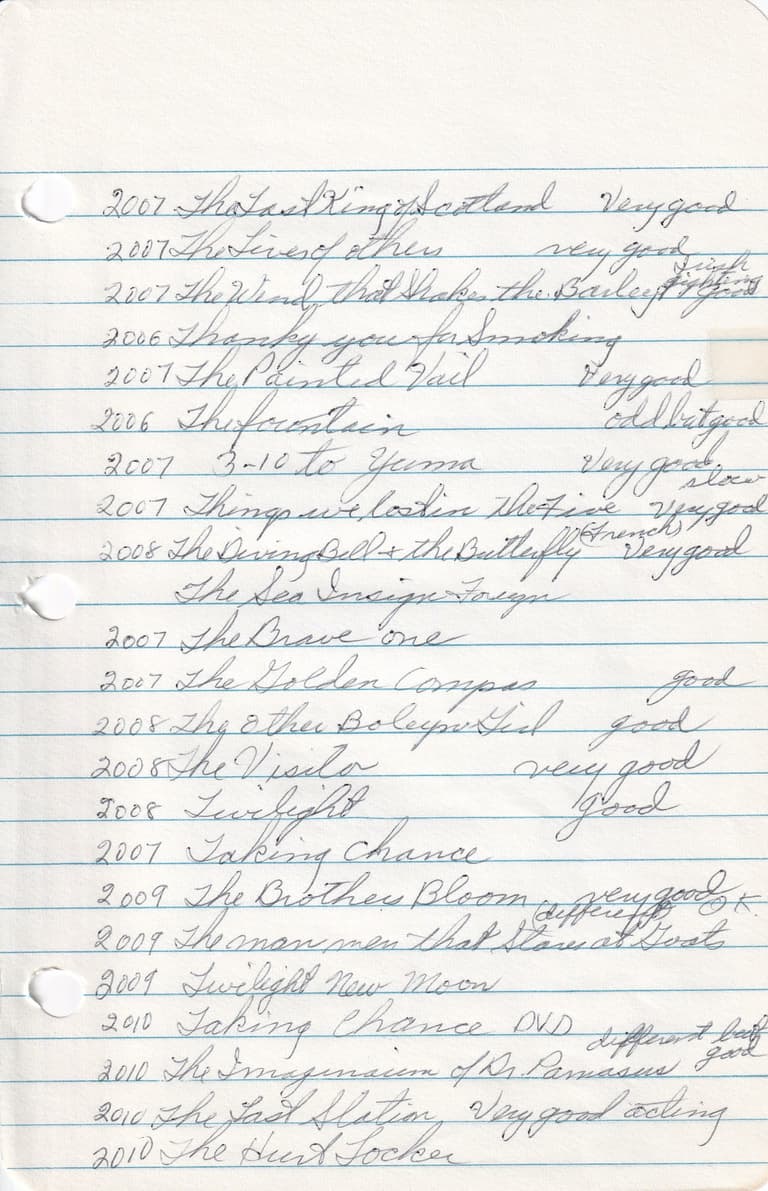 2007 The Last King of Scotland Very good
2007 The Lives of others very good
2007 The Wind that Shakes the Barley Irish fighting good
2006 Thanky you for Smoking
2007 The Painted Vail Very good
2006 The fountain odd but good
2007 3-10 to Yuma Very good
2007 Things we lost in the Fire slow Very good
2008 The Diving Bell + the Butterfly (French) Very good
The Sea Insign Foreign
2007 The Brave one
2007 The Golden Compas good
2008 The Other Boleyn Girl good
2008 The Visitor very good
2008 Twilight Good
2007 Taking Chance
2009 The Brothers Bloom very good
2009 The man men that Stares at Goats (different) OK.
2009 Twilight New Moon
2010 Taking Chance DVD
2010 The Imaginaium of Dr. Parnasus different but good
2010 The Last Station Very good acting
2010 The Hurt Locker